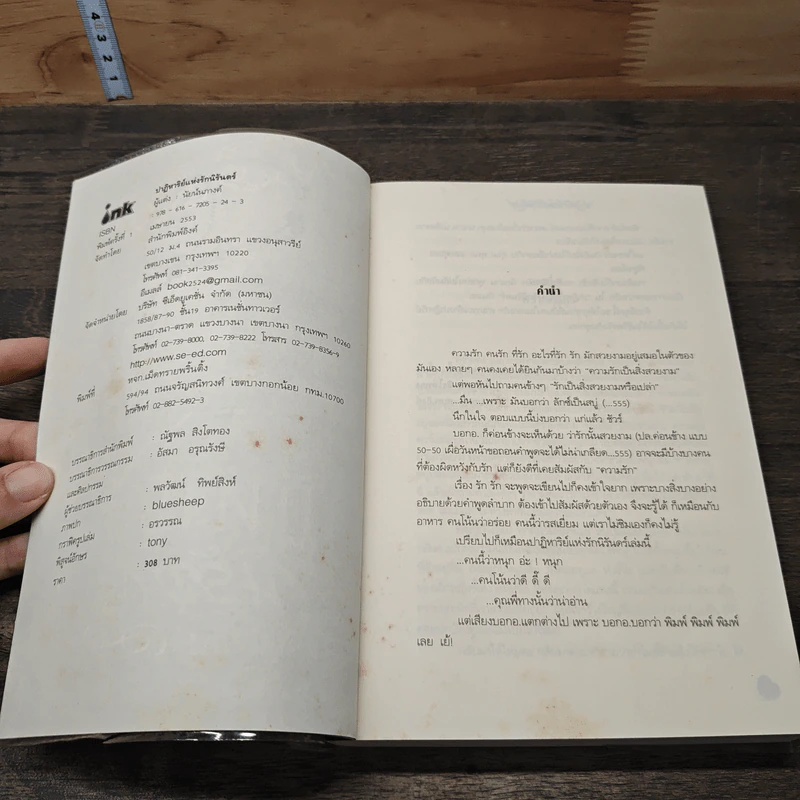 4
3
2
1
ink
ปาฏิหาริย์แห่งรักนิรันดร์
ผู้แต่ง : นัยน์นภางค์
ISBN : 978 - 616 - 7205 - 24 - 3
พิมพ์ครั้งที่ 1 เมษายน 2553
จัดทำโดย สำนักพิมพ์อิงค์
50/12 ม.4 ถนนรามอินทรา แขวงอนุสาวรีย์
เขตบางเขน กรุงเทพฯ 10220
โทรศัพท์ 081-341-3395
อีเมลล์ book2524@gmail.com
จัดจำหน่ายโดย บริษัท ซีเอ็ดยูเคชั่น จำกัด (มหาชน)
1858/87-90 ชั้น19 อาคารเนชั่นทาวเวอร์
ถนนบางนา-ตราด แขวงบางนา เขตบางนา กรุงเทพฯ 10260
โทรศัพท์ 02-739-8000, 02-739-8222 โทรสาร 02-739-8356-9
http://www.se-ed.com
พิมพ์ที่ หจก.เม็ดทรายพริ้นติ้ง
594/94 ถนนจรัญสนิทวงศ์ เขตบางกอกน้อย กทม.10700
โทรศัพท์ 02-882-5492-3
บรรณาธิการสำนักพิมพ์ : ณัฐพล สิงโตทอง
บรรณาธิการวรรณกรรม : อัสมา อรุณรังษี
และศิลปกรรม
ผู้ช่วยบรรณาธิการ : พลวัฒน์ ทิพย์สิงห์
ภาพปก : bluesheep
กราฟิครูปเล่ม : อรวรรณ
พิสูจน์อักษร : tony
ราคา : 308 บาท
คำนำ
ความรัก คนรัก ที่รัก อะไรที่รัก รัก มักสวยงามอยู่เสมอในตัวของ
มันเอง หลายๆ คนคงเคยได้ยินกันมาบ้างว่า “ความรักเป็นสิ่งสวยงาม”
แต่พอหันไปถามคนข้างๆ “รักเป็นสิ่งสวยงามหรือเปล่า”
...มึน ...เพราะ มันบอกว่า ลักซ์เป็นสบู่ (...555)
นึกในใจ ตอบแบบนี้บ่งบอกว่า แก่แล้ว ชัวร์
บอกอ. ก็ค่อนข้างจะเห็นด้วย ว่ารักนั้นสวยงาม (ปล.ค่อนข้าง แบบ
50-50 เผื่อวันหน้าขอถอนคำพูดจะได้ไม่น่าเกลียด...555) อาจจะมีบ้างบางคน
ที่ต้องผิดหวังกับรัก แต่ก็ยังดีที่เคยสัมผัสกับ “ความรัก”
เรื่อง รัก รัก จะพูดจะเขียนไปก็คงเข้าใจยาก เพราะบางสิ่งบางอย่าง
อธิบายด้วยคำพูดลำบาก ต้องเข้าไปสัมผัสด้วยตัวเอง จึงจะรู้ได้ ก็เหมือนกับ
อาหาร คนโน้นว่าอร่อย คนนี้ว่ารสเยี่ยม แต่เราไม่ชิมเองก็คงไม่รู้
เปรียบไปก็เหมือนปาฏิหาริย์แห่งรักนิรันดร์เล่มนี้
...คนนี้ว่าหนุก อ่ะ ! หนุก
...คนโน้นว่าดี ดี๊ ดี
...คุณพี่ทางนั้นว่าน่าอ่าน
แต่เสียงบอกอ.แตกต่างไป เพราะ บอกอ.บอกว่า พิมพ์ พิมพ์ พิมพ์
เลย เย้!